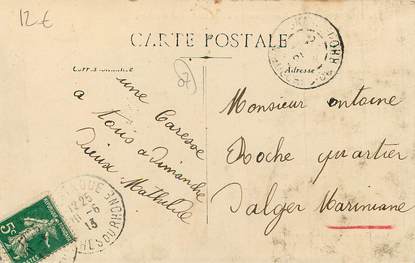 12 €
CARTE POSTALE
Correspondance
Adresse
2
une Caresse
a tous a Dimanche
Vieux Mathilde
Monsieur ontoine
Roche quartier
Dalger Marinians
5c
POSTES
12 25
6
13